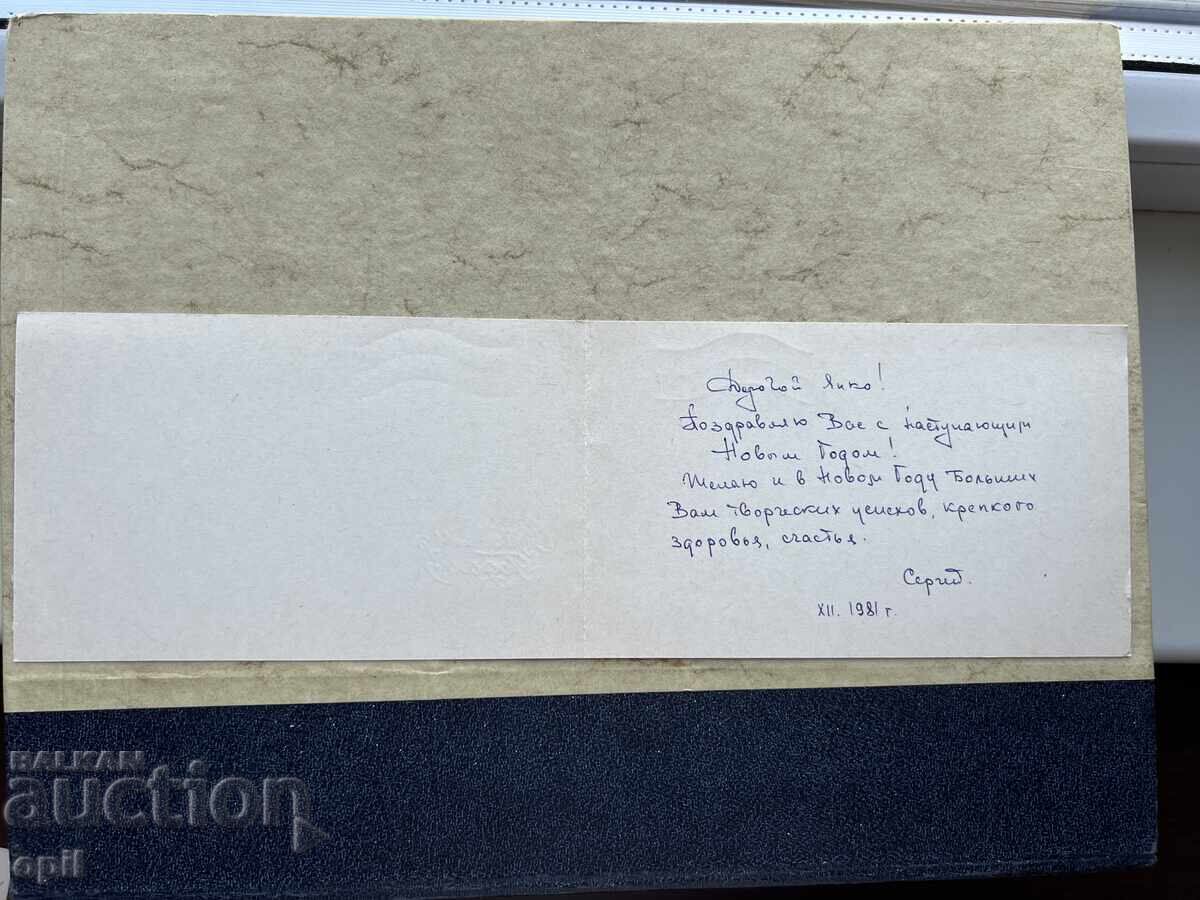 Дорогой Янко!
Поздравляю Вас с наступающим
Новым Годом!
Желаю и в Новом Году Больших
Вам творческих успехов, крепкого
здоровья, счастья.
Сергей.
XII. 1981 г.
BALKAN
auction
opil